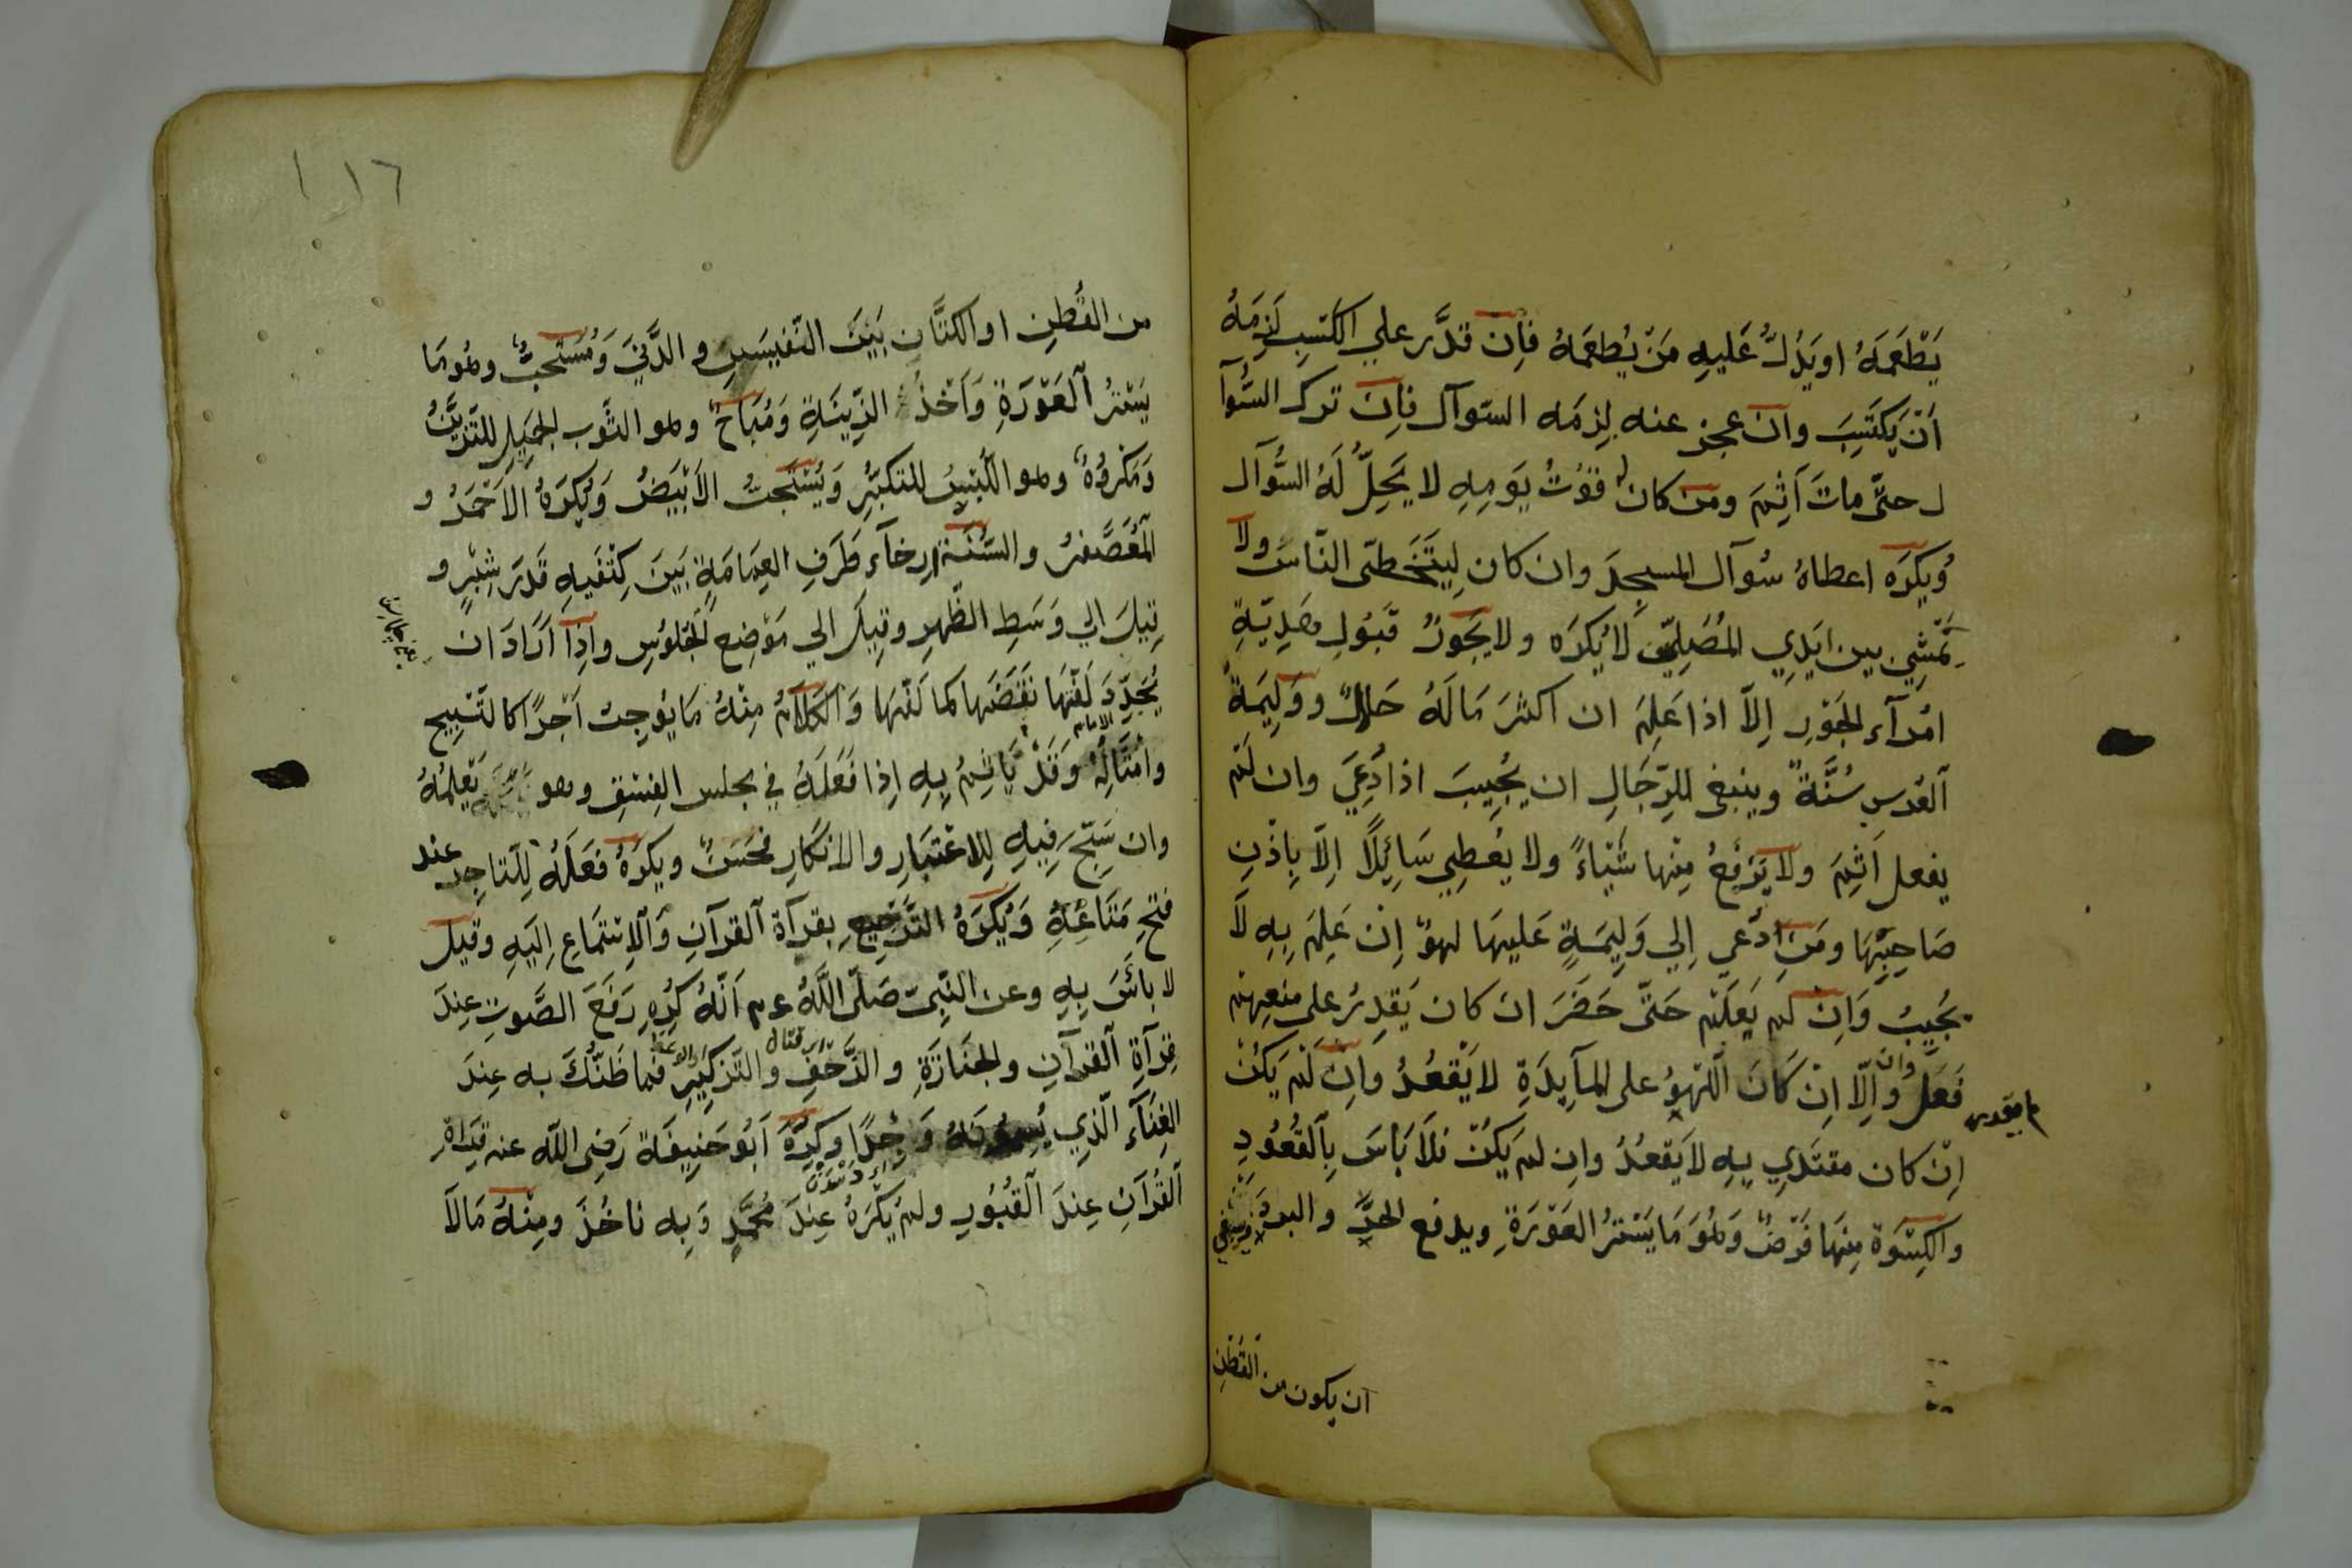 يَطْعَمَهُ او يَدُلُّ عَليهِ مَنْ يُطعِمَهُ فاِنْ قدَّر علي الكَسْبِ لَزِمَهُ
اَنْ يَكتَسِبَ وان عجز عنه لزِمَه السّوآل فاِن ترك السُّوآ
ل حتّٰي ماتَ اَثِمَ ومن كان له قُوْتُ يَومِهِ لا يَحِلُّ لَهُ السُّوآل
وُيكرَه اعطاهُ سُوآل المسجِدَ وان كان ليتَخَطّى النّاسَ ولا
يَمْشِي بين ايَدِي المُصَلِيّن لَايُكرَه ولا يَجَوزُ قبَوُل هَدِيّةِ
امُرآء الجَوْرِ اِلاّ اذا عَلِمَ ان اكثرَ مَالَهُ حَلالٌ ووَلِيمَةُ
العُرس سُنَّةٌ وينبغى للرّجَالِ ان يُجيبَ اذا دُعِيَ وان لَمْ
يفعل اَثِمَ ولا يَرْفعُ مِنْها شَيْاءً ولا يعُطِي سَائِلًا اِلاّ بِاِذْنِ
صَاحِبِهَا ومَن دُعي اِلي وَلِيمَةٍ عَليهَا لهوٌ اِن عَلِمَ بِهِ لاَ
يُجيبُ وَاِن لم يَعلَمْ حَتّٰى حَضَرَ ان كان يَقدِرُ على منعِهِمْ
فَعَلَ وان وَاِلّا اِنْ كَانَ اللّهوُ على المآيِدَةِ لا يَقعُدُ وانْ لَمْ يَكُنْ
لم يقدر
اِنْ كان مقتَدِي بِهِ لاَ يَقعُدُ وان لم يَكُنْ فلاَ بَاسَ بِالقعُوُدِ
والكِسْوَة مِنهَا فَرْضٌ وَهُوَ مَا يَسْترُ العَوْرَةِ ويدفع الحرَّ والبردَ وينبغي
ان يكون من القطن
١١٦
من القُطنِ او الكتَّانِ بَينَ النّفيسِ والدَّنيِّ وَمُسْتَحَبٌّ وهُو مَا
يَسْترُ العَوْرَةِ وَاَخْذُ الزّينَةِ وَمُبَاحٌ وهو الثَوب الجميلِ للتّزَيُّنُ
وَمَكرُوُهٌ وهو اللُّبْسُ للتكبُّرِ وَيُسْتَحَبُّ الاَبْيَضُ وَيُكرَهُ الاَحْمَرُ و
المُعَصَّفرُ والسُّنّة اِرخآء طَرَفِ العِمَامَةِ بَينَ كِتْفَيهِ قَدرَ شِبْرٍ و
قِيلَ الي وَسَطِ الظّهرِ وقِيلَ الي مَوْضِعِ الجُلوُسِ واِذا اَرَادَ ان
يُجَدِّدَ لَفّهَا نقَضَها كما لَفّهَا وَالكَلامُ مِنْهُ مَا يُوجِبُ اَجْرًا كالتّسْبِيح
وامْثَالُهُ وَقَدْ يَاثمُ بِهِ اِذا فَعَلَهُ في مجلس الفِسْقِ وهو يَعْلَمُهُ
وان سَبّحَ فِيهِ لِلاعْتبارِ والاِنكَارِ فحَسَنٌ ويكرَهُ فَعَلَهُ لِلتاجِر عند
فتحِ مَتَاعِهِ وَيُكرَهُ التَّرْجِيعِ بقرآة القرآنِ وَالاِستماعِ اِليَهِ وقيل
لا باَسَ بِهِ وعن النّبيّ صَلّى اللّهُ عم اَنّهُ كُرِهِ رَفَعَ الصَّوتِ عِندَ
قرآةِ القرآنِ والجنَازَةِ والزَّحْفِ والتّذكِيرِ فما ظَنّكَ به عِندَ
الغِنَآء الّذِي يُسمُّونَهُ وَجْدًا وكرّهَ اَبوُ حَنِيفَة رَضى اللّه عنه قِرَاةِ
القُرآنِ عِندَ القبُوُرِ ولم يُكْرَهُ عِندَ مُحمَّدٍ وَبِه ناخُذَ ومِنْهُ مَالاَ